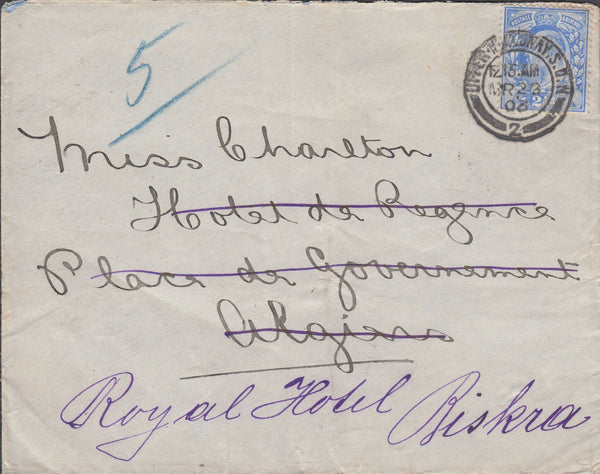 5
POSTAGE
12.15 AM
MR 22
03
2
Miss Charlton
Hotel de Regence
Place de Governement
Algiers
Royal Hotel Biskra